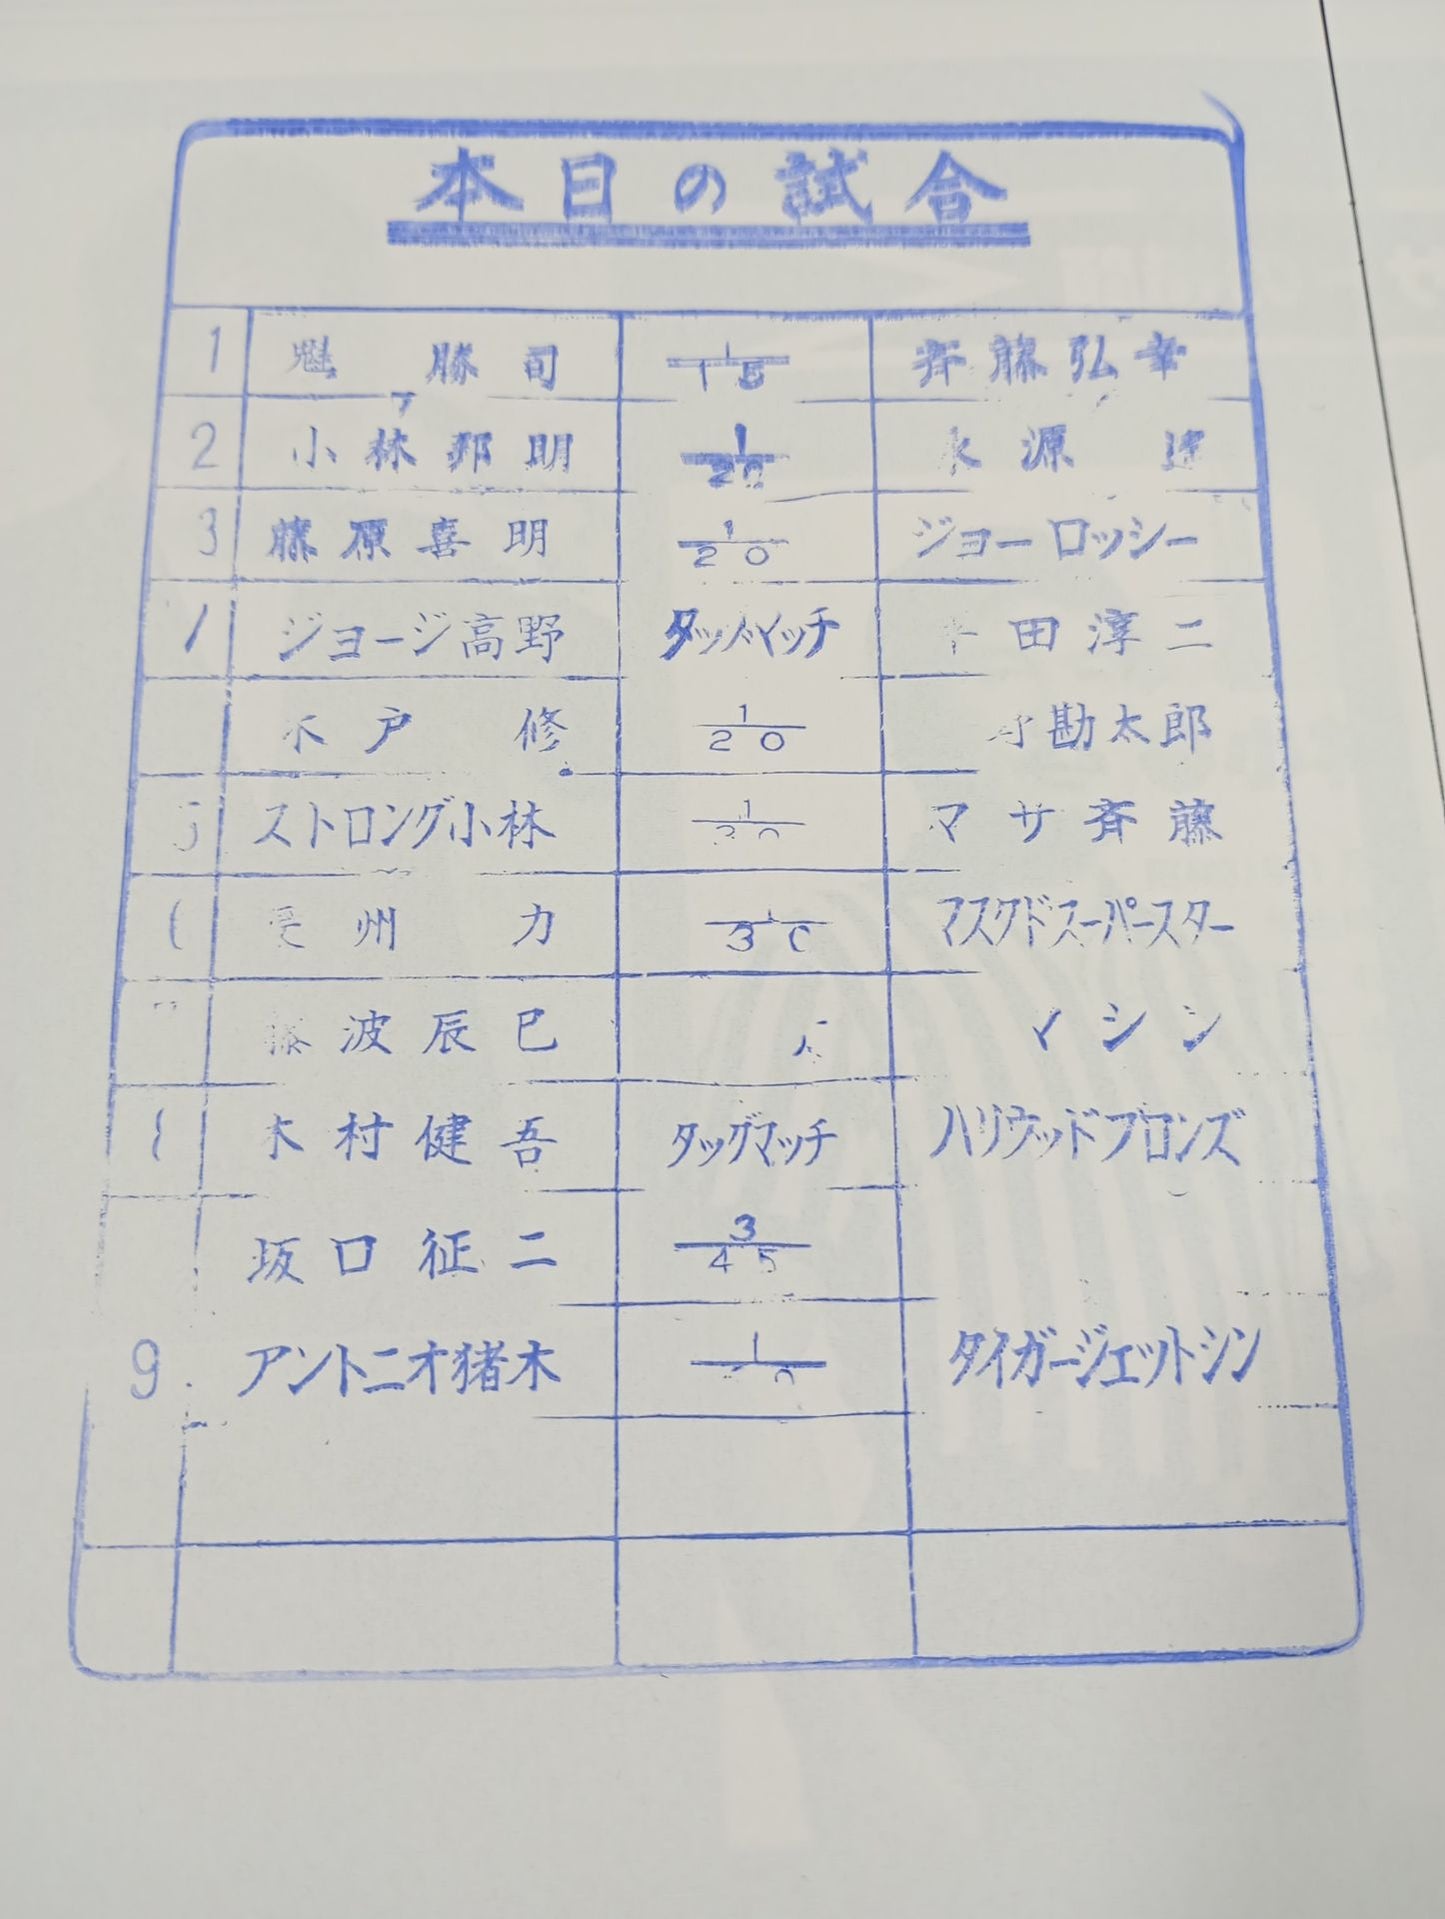 本日の試合
1 魁 勝司 1/15 斉藤弘幸
2 小林邦明 1/20 永源 遥
3 藤原喜明 1/20 ジョーロッシー
ジョージ高野 タッグマッチ 田淳二
木戸 修 1/20 勘太郎
ストロング小林 1/20 マサ斉藤
長州 力 1/30 マスクドスーパースター
藤波辰巳 シン
木村健吾 タッグマッチ ハリウッドブロンズ
坂口征二 3/45
9 アントニオ猪木 タイガージェットシン